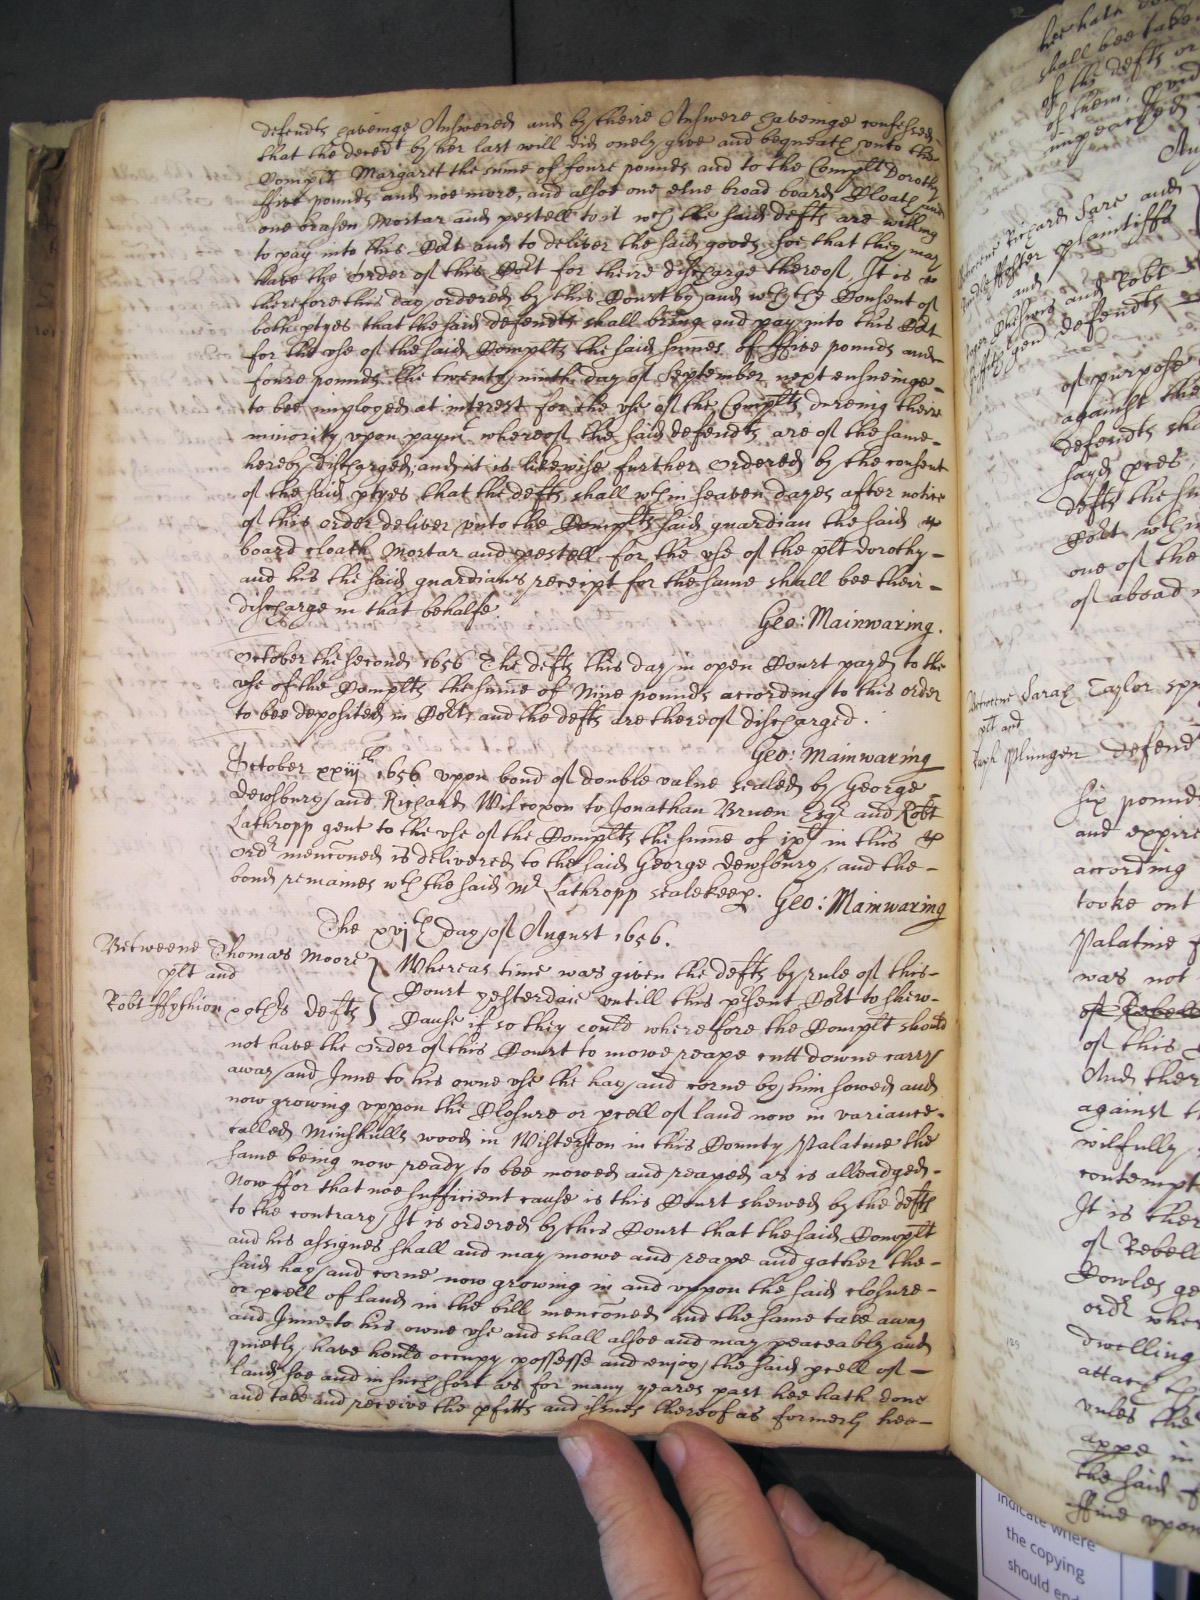 defendts haveinge Answered and by theire Answere haveinge confessed
that the decedt by her last will did onely give and bequeath vnto the
Complt Margaret the sume of foure pounds and to the Complt Dorothy
ffive pounds and noe more, and alsoe one elne broad board Cloath and
one brasen Mortar and pestell to it wch the said defts are willing
to pay into this Cort and to deliver the said goods soe that they may
have the order of this Cort for theire discharge thereof, It is
therefore this day ordered by this Court by and wth the Consent of
both ptyes that the said defendts shall bring and pay into this Cort
for the vse of the said Complts the said sumes of ffive pounds and
foure pounds the twenty ninth day of September next ensueinge
to bee imployed at interest for the vse of the Complts dureing their
minority vpon paymt whereof the said defendts are of the same
hereby discharged, and it is likewise further ordered by the consent
of the said ptyes that the defts shall wthin seaven dayes after notice
of this order deliver vnto the Complts said guardian the said
board cloath Mortar and pestell for the vse of the plt Dorothy
and his the said guardians receipt for the same shall bee their
discharge in that behalfe.
Geo: Mainwaring.
October the second 1656 The defts this day in open Court payd to the
vse of the Complts the sume of Nine pounds according to this order
to bee deposited in Cort, and the defts are thereof discharged.
Geo: Mainwaring
October xxiijth 1656 vpon bond of double value sealed by George
Dewsbury and Richard Wilcoxon to Jonathan Bruen Esqr and Robt
Lathropp gent to the vse of the Complts the sume of ixl in this
ordr menconed is delivered to the said George Dewsbury, and the
bond remaines wth the said Mr Lathropp sealekeepr. Geo: Mainwaring
The xvjth day of August 1656.
Betweene Thomas Moore
plt and
Robt ffythion & others defts
Whereas time was given the defts by rule of this
Court yesterdaie vntill this psent Cort to shew
Cause if so they could wherefore the Complt should
not have the order of this Court to mowe reape cutt downe carry
away and Inne to his owne vse the hay and corne by him sowed and
now growing vppon the Closure or pcell of land now in variance
called Minshulls wood in Wisterston in this County Palatine the
same being now ready to bee mowed and reaped as is alleadged
Now ffor that noe sufficient cause is this Court shewed by the defts
to the contrary, It is ordered by this Court that the said Complt
and his assignes shall and may mowe and reape and gather the
said hay and corne now growing in and vppon the said closure
or pcell of land in the bill menconed and the same take away
and Inne to his owne vse and shall alsoe and may peaceably and
quietly have hould occupy possesse and enjoy the said pcell of
land soe and in such sort as for many yeares past hee hath done
and take and receive the pfitts and issues thereof as formerly hee
shall bee take
of the defts or
of them,
impeached
Betweene Richard
plaintiffs
and
and Robt
gen defendts
of purpose
against the
defendts sha
said
defts the su
Cort wthin
one of the
of aboad
Betweene Sarah Taylor spr
plt and
defend
six pound
and expire
according
tooke out
Palatine
was not
of Rebell
of this
And ther
against t
wilfully
contempt
It is ther
of Rebell
Cowles ge
ordr wher
dwelling
attach
vnles the
appe in
the said
ffine vpon
189
indicate where
the copying
should end